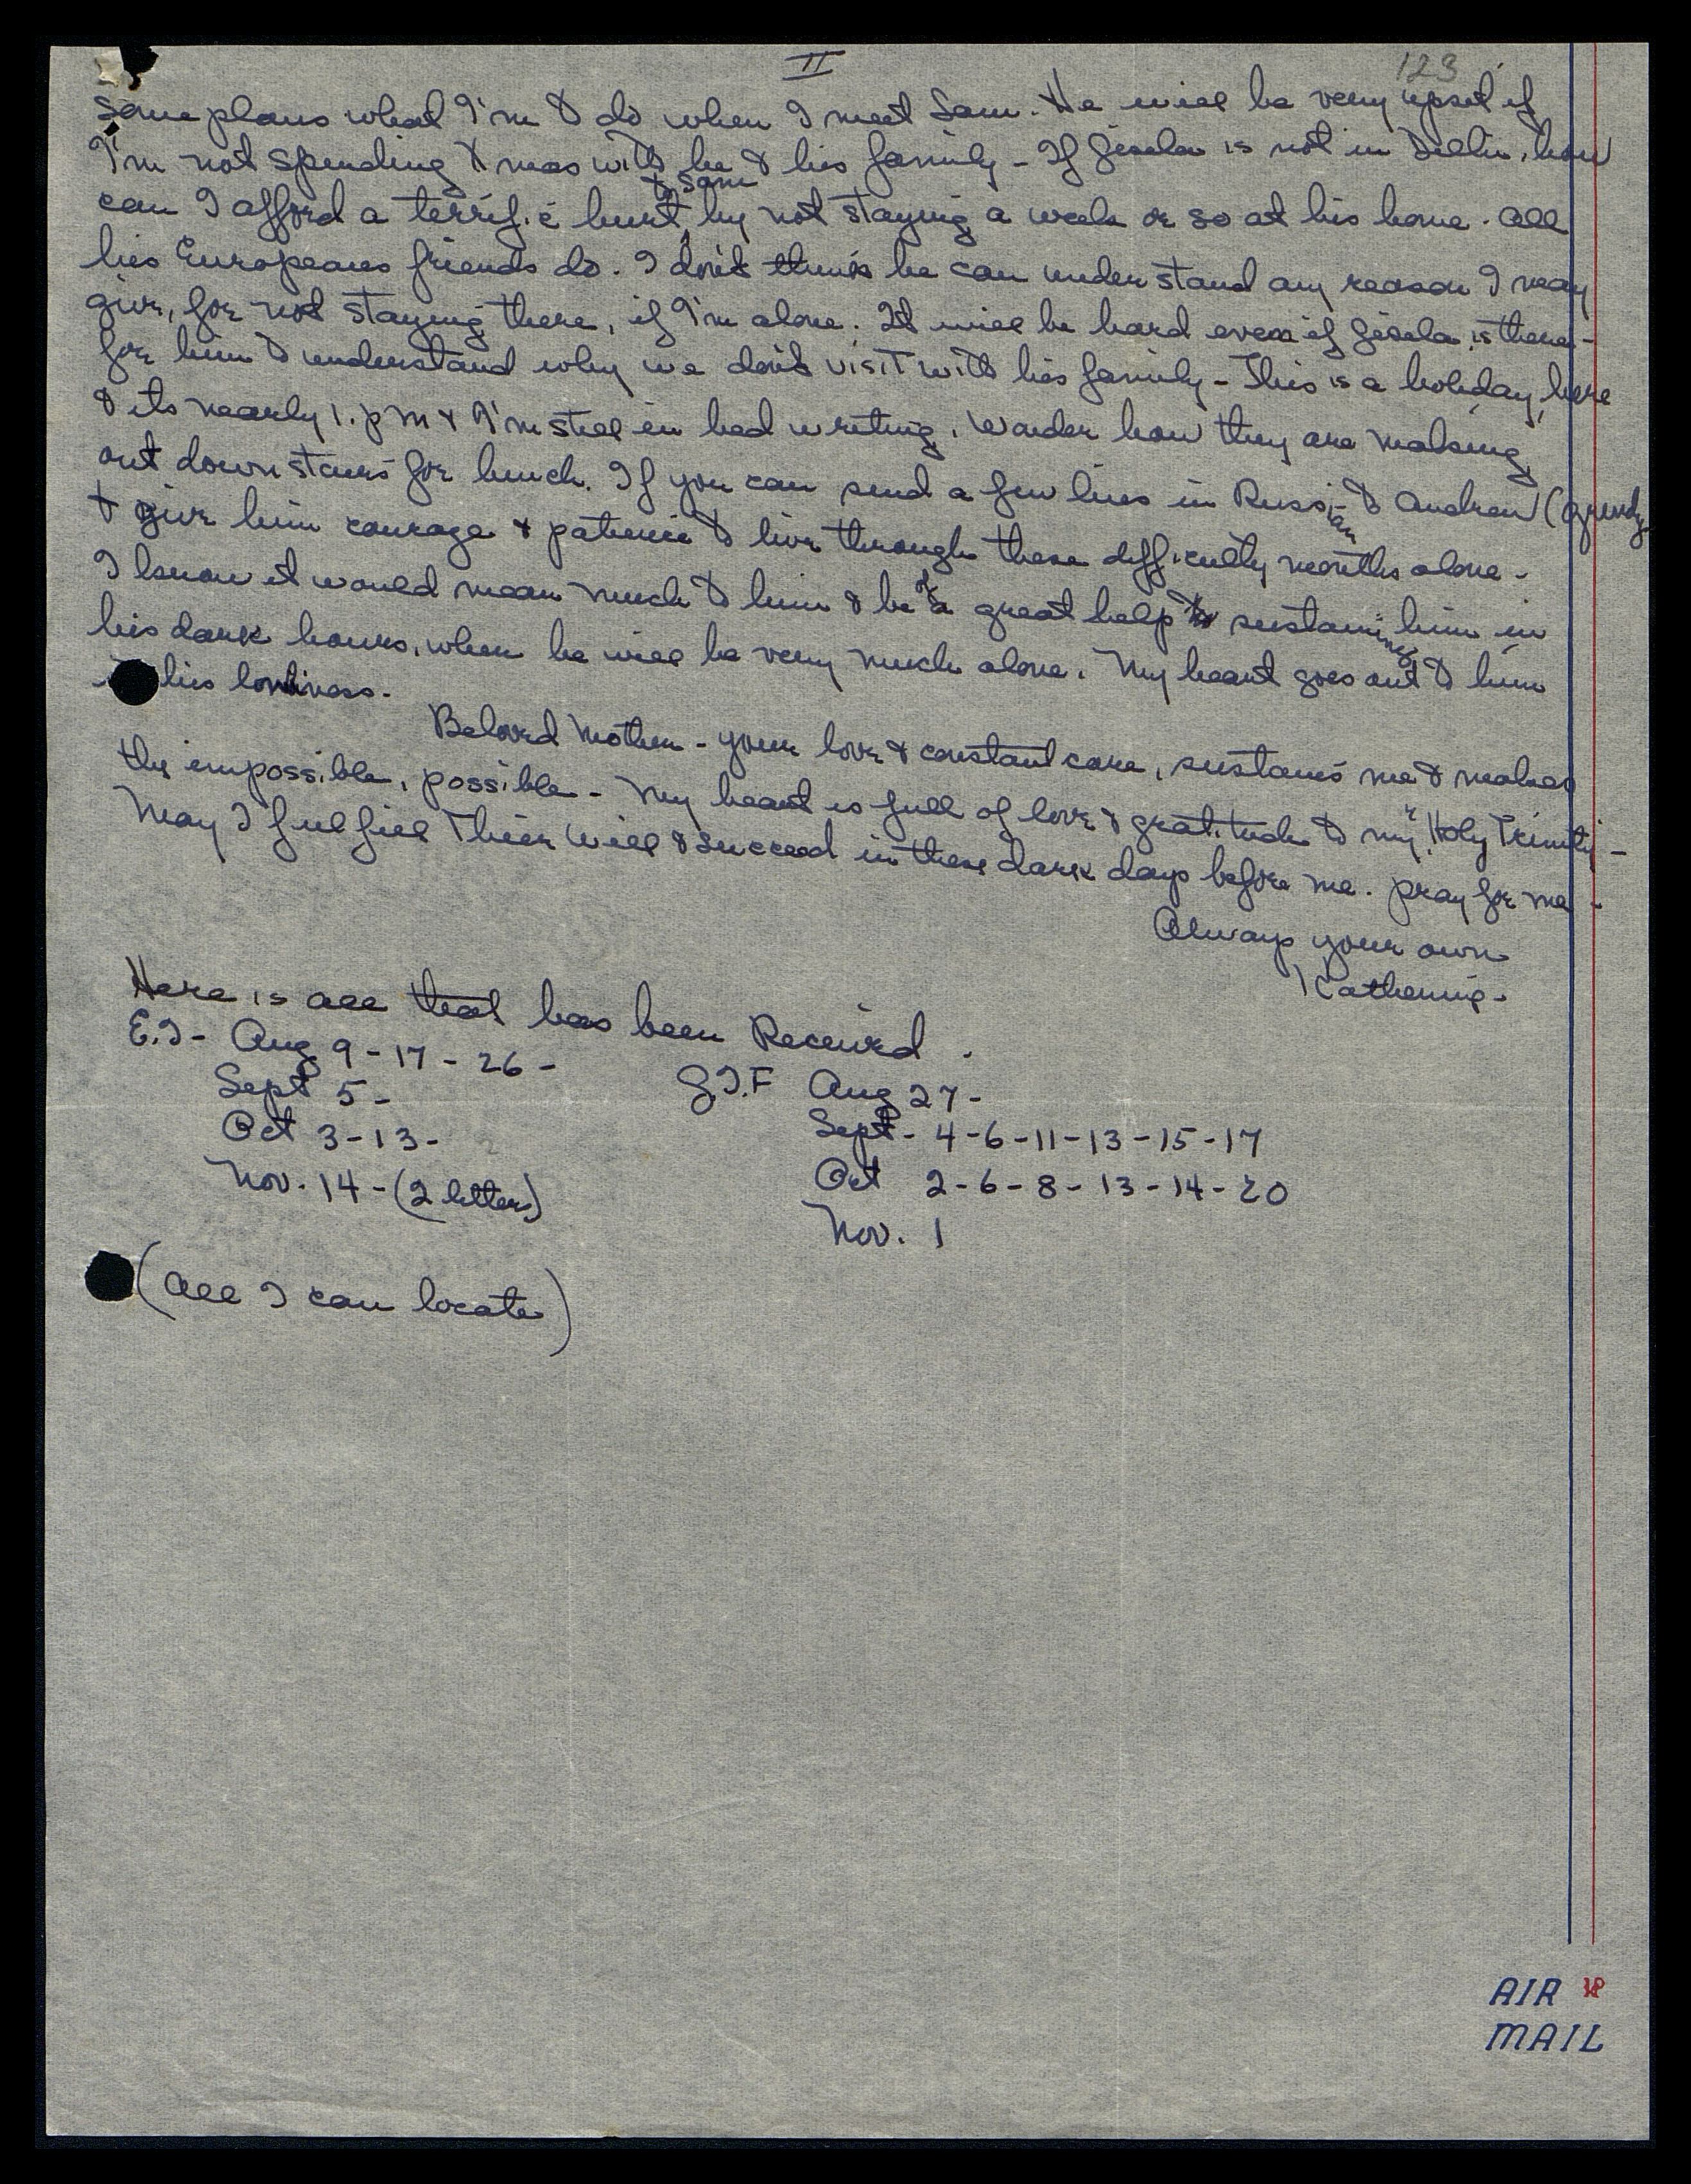 II
123
some plans what I'm to do when I meet Sam. He will be very upset if
I'm not spending Xmas with he & his family - If Gisela is not in Delhi, how
can I afford a terrific hurt to Sam by not staying a week or so at his home. All
his Europeans friends do. I don't think he can understand any reason I may
give, for not staying there, if I'm alone. It will be hard even if Gisela is there -
for him to understand why we don't visit with his family - This is a holiday, here
& its nearly 1. pm & I'm still in bed writing. Wonder how they are making
out down stairs for lunch. If you can send a few lines in Russian to Andrew
& give him courage & patience to live through these difficulty months alone -
I know it would mean much to him & be of a great help sustaining him in
his dark hours, when he will be very much alone. My heart goes out to him
his lonliness.
Beloved Mother - your love & constant care, sustains me & makes
the impossible, possible - My heart is full of love & gratitude to my "Holy Trinity" -
May I fulfill Their Will & succeed in these dark days before me. Pray for me -
Always your own
Katherine -
Here is all that has been Received .
E.I - Aug 9 - 17 - 26 -
Sept 5 -
Oct 3 - 13 -
Nov. 14 - (2 letters)
G.I.F Aug 27 -
Sept - 4 - 6 - 11 - 13 - 15 - 17
Oct 2 - 6 - 8 - 13 - 14 - 20
Nov. 1
(All I can locate)
AIR
MAIL